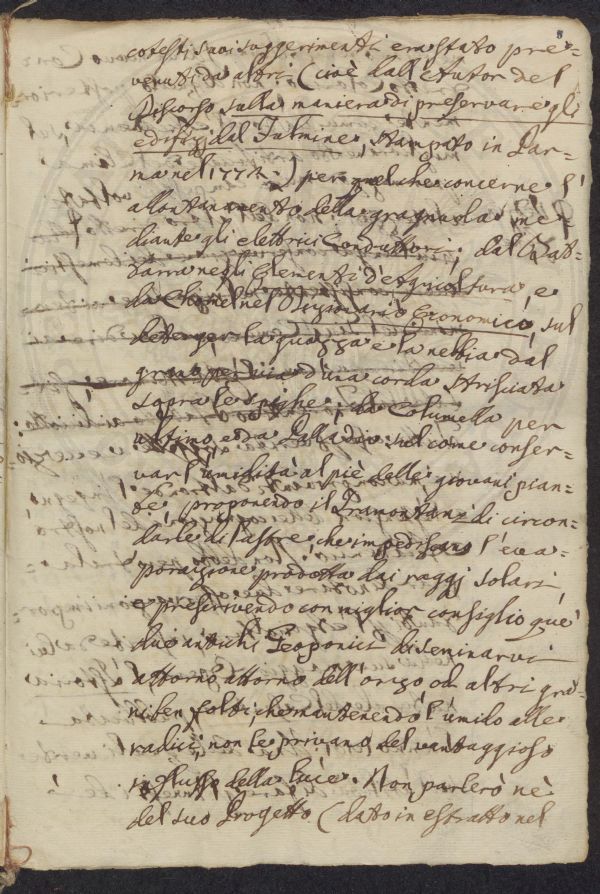 8
cotesti suoi suggerimenti era stato pre=
venuti da altri (cioè dall'Autor del
Discorso sulla maniera di preservare gli
edifizj dal Fulmine, stampato in Par=
ma nel 1772.) per quel che concerne l'
allontanamento della gragnuola me=
diante gli elettrici Conduttori; dal Bat=
tarra negli Elementi d'Agricoltura, e
da Chomel nel Dizionario Economico, sul
deterger la guazza e la nebbia dal
grano per via d'una corda strisciata
sopra le spighe; da Columella per
ultimo e da Palladio sul come conser=
var l'umidità al piè delle giovani pian=
te, proponendo il Pramontanz di circon=
darle di lastre, che impediscano l'eva=
porazione prodotta dai raggj solari
e prescrivendo con miglior consiglio que'
due antichi Geoponici di seminarvi
attorno attorno dell'orzo od altri gra=
ni ben folti, che mantenendo l'umido alle
radici, non le privano del vantaggioso
influsso della luce. Non parlerò nè
del suo Progetto (dato in estratto nel